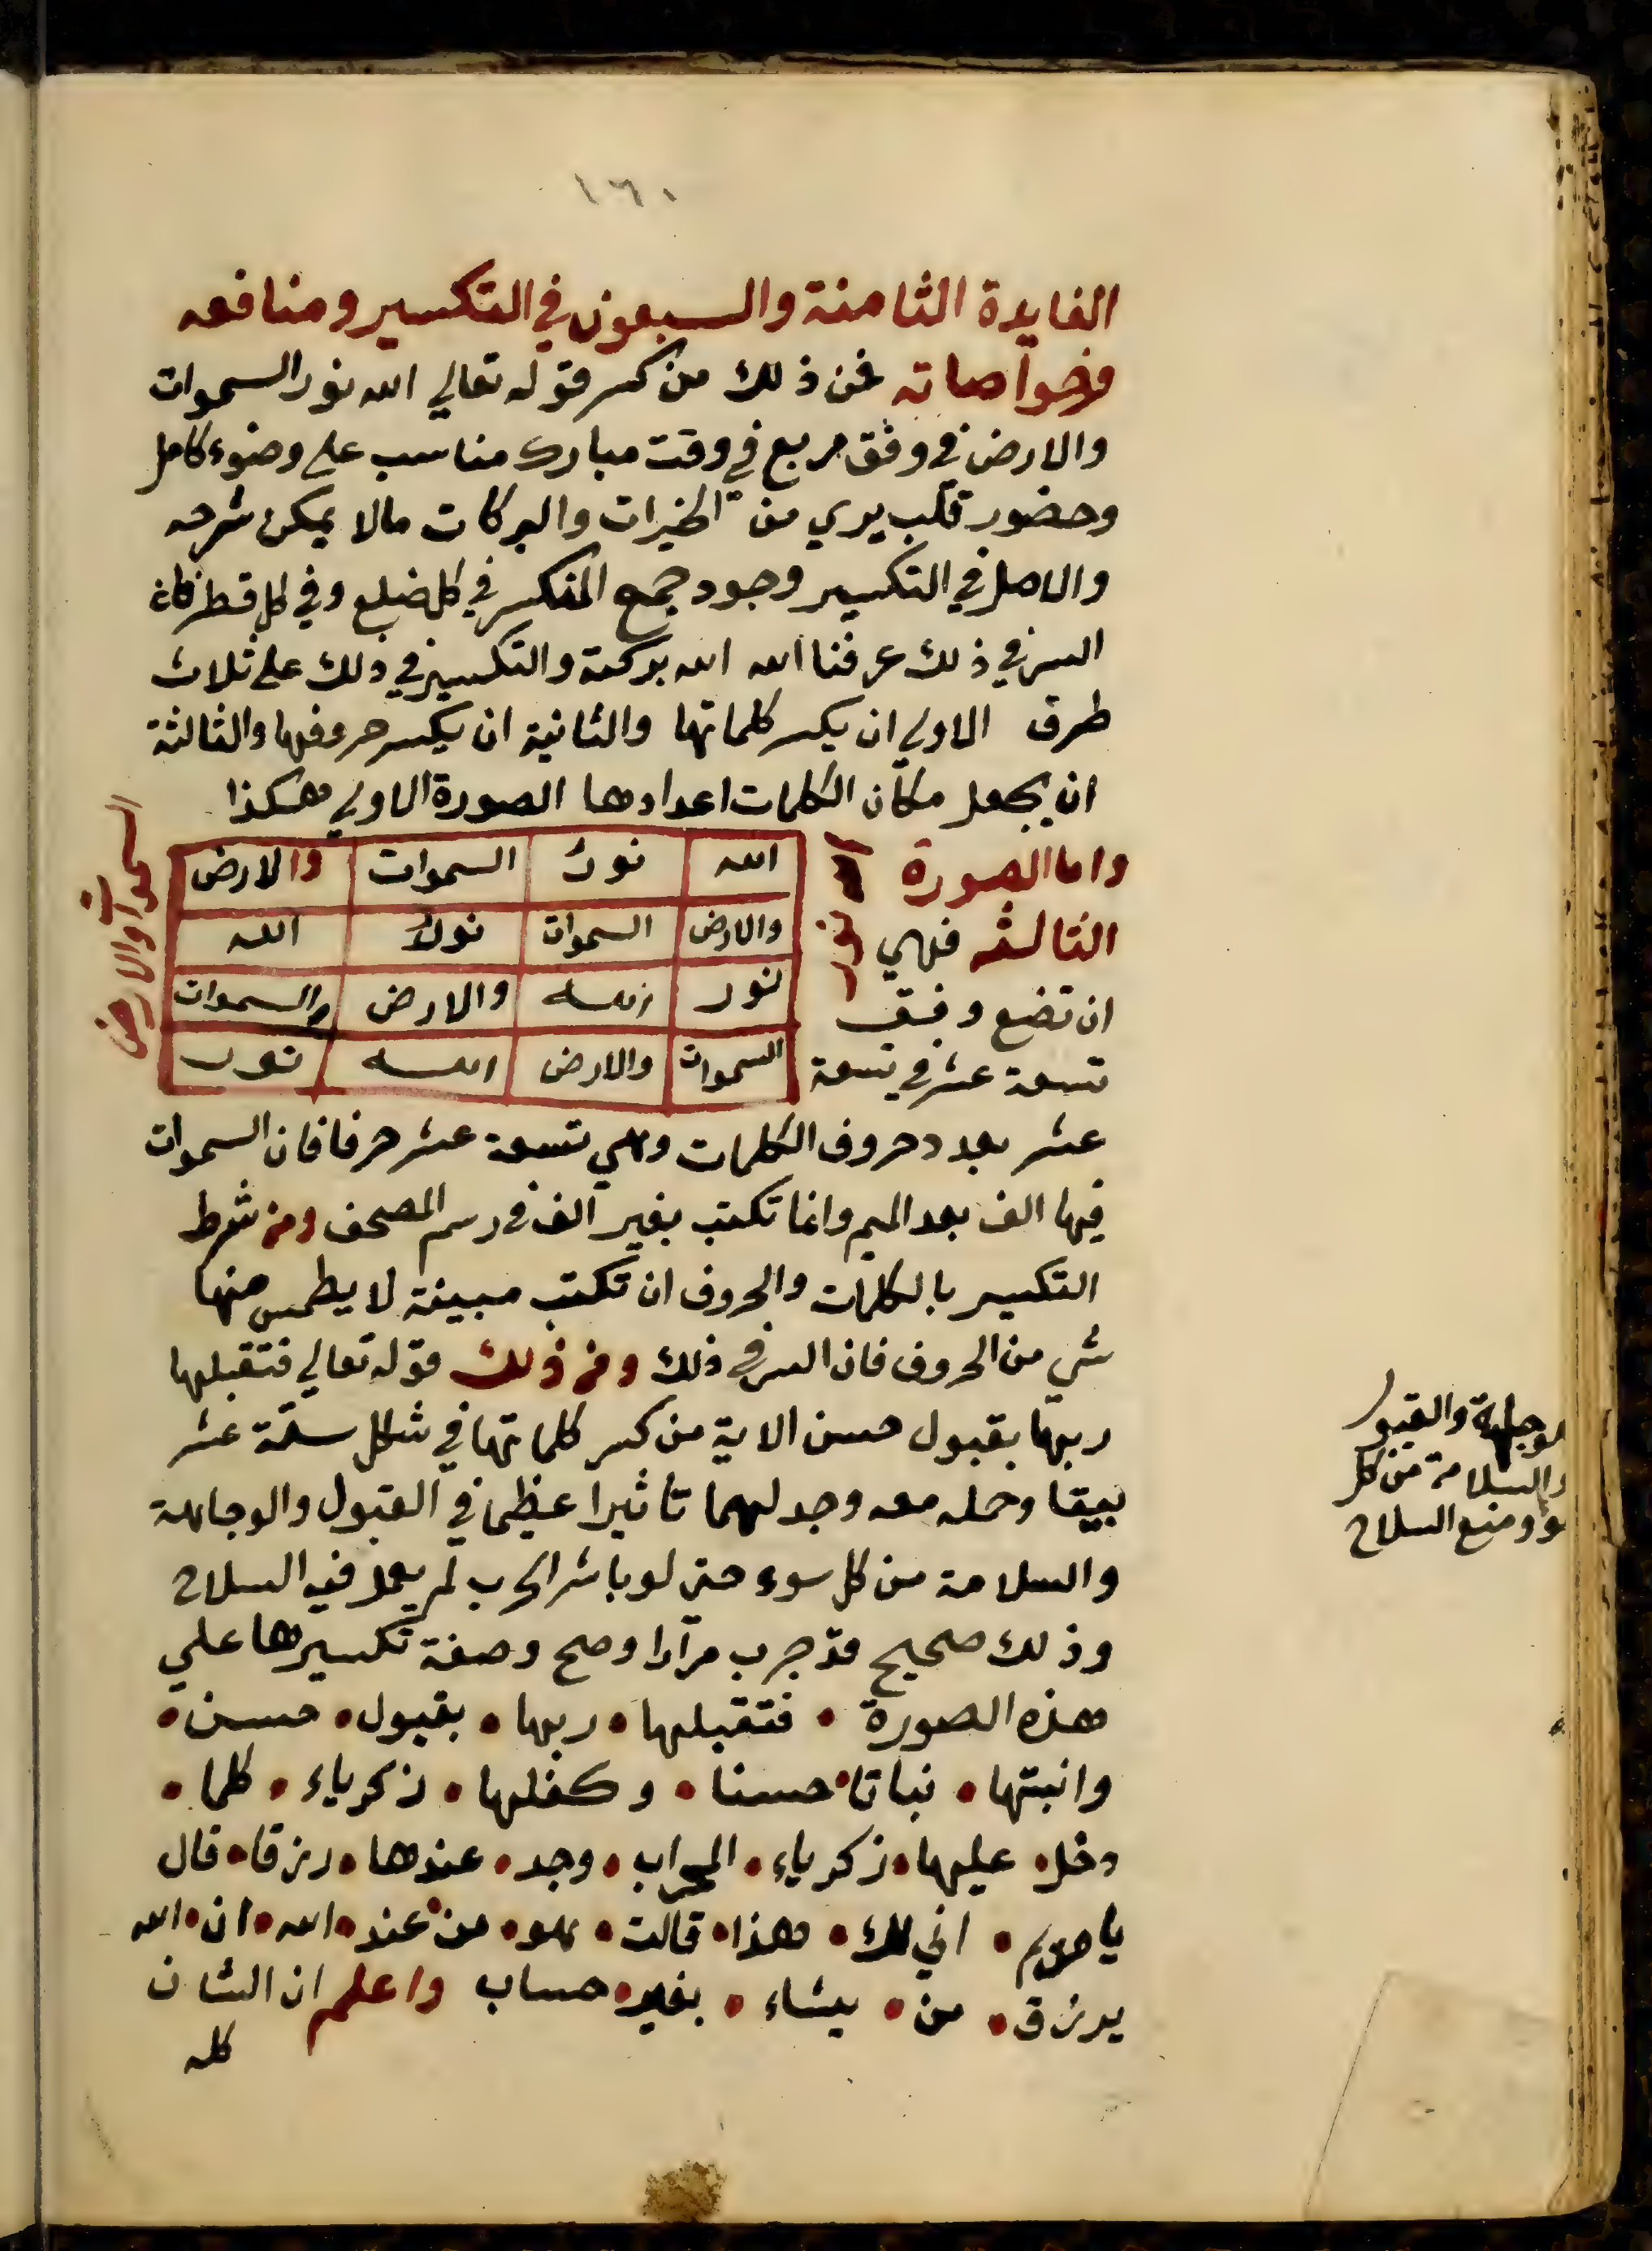 ١٦٠
الفايدة الثامنة والسبعون في التكسير ومنافعه
وخواصاته فمن ذلك من كسر قوله تعالي الله نور السموات
والارض في وفق مربع في وقت مبارك مناسب علي وضوء كامل
وحضور قلب يري من الخيرات والبركات مالا يمكن شرحه
والاصل في التكسير وجود جمع المنكسر في كل ضلع وفي كل قطر فان
السر في ذلك عرفنا الله الله بركته والتكسير في ذلك علي ثلاث
طرق الاولي ان يكسر كلماتها والثانية ان يكسر حروفها والثالثة
ان يجعل مكان الكلمات اعدادها الصورة الاولي هكذا
الله نور السموات والارض
والارض السموات نور الله
نور الله والارض والسموات
السموات والارض الله نور
نور
السموات والارض
واما الصورة
الثالثه فهي
ان تضع وفق
تسعة عشر في تسعة
عشر بعدد حروف الكلمات وهي تسعة عشر حرفا فان السموات
فيها الف بعد الميم وانما تكتب بغير الف في رسم المصحف ومن شرط
التكسير بالكلمات والحروف ان تكتب مبينة لا يطمس منها
شي من الحروف فان السر في ذلك ومن ذلك قوله تعالي فتقبلها
ربها بقبول حسن الاية من كسر كلماتها في شكل ستة عشر
بيتا وحمله معه وجد لهما تاثيرا عظيما في القبول والوجاهة
والسلامة من كل سوء حتي لو باشر الحرب لم يعمل فيه السلاح
وذلك صحيح قد جرب مرارا وصح وصفة تكسيرها علي
هذه الصورة • فتقبلها • ربها • بقبول • حسن •
وانبتها • نباتا • حسنا • وكفلها • زكرياء • كلما •
دخل • عليها • زكرياء • المحراب • وجد • عندها • رزقا • قال
يا مريم • اني لك • هذا • قالت • هو • من • عند • الله • ان • الله
يرزق • من • يشاء • بغير • حساب واعلم ان الشان
كله
والقبول
والسلامة من كل
ومنع السلاح